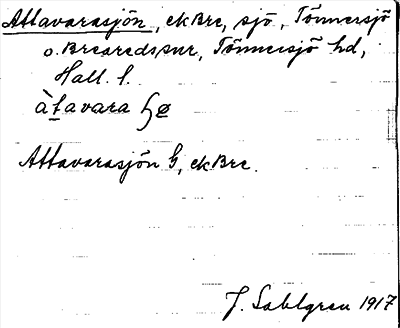 Attavarasjön, ekBre, sjö, Tönnersjö
o. Brearedsснr, Tönnersjö hd,
Hall. l.
àtavara
Attavarasjön G, ekBre.
J. Sahlgren 1917